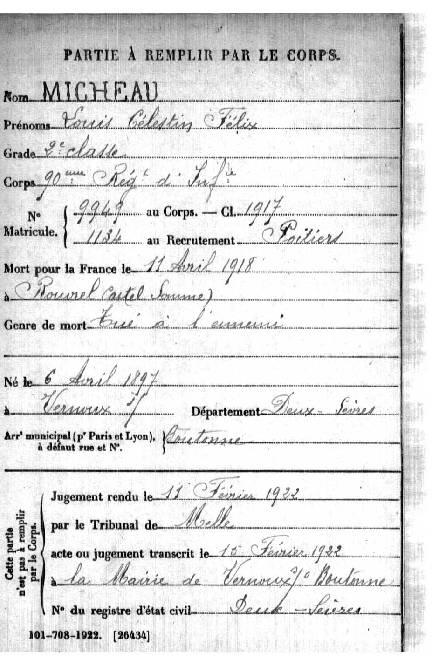 PARTIE À REMPLIR PAR LE CORPS.
Nom MICHEAU
Prénoms Louis Célestin Félix
Grade 2e classe
Corps 90ème Régt d'Infie
No Matricule. { 9949 au Corps. — Cl. 1917
1134 au Recrutement Poitiers
Mort pour la France le 11 Avril 1918
à Rouvrel Castel Somme)
Genre de mort Tué à l'ennemi
Né le 6 Avril 1897
à Vernoux s/ Département Deux-Sèvres
Arrt municipal (pr Paris et Lyon), à défaut rue et No. { Boutonne
Cette partie n'est pas à remplir par le Corps.
Jugement rendu le 11 Février 1922
par le Tribunal de Melle
acte ou jugement transcrit le 15 Février 1922
à la Mairie de Vernoux s/ Boutonne
No du registre d'état civil Deux-Sèvres
101-708-1922. [26434]